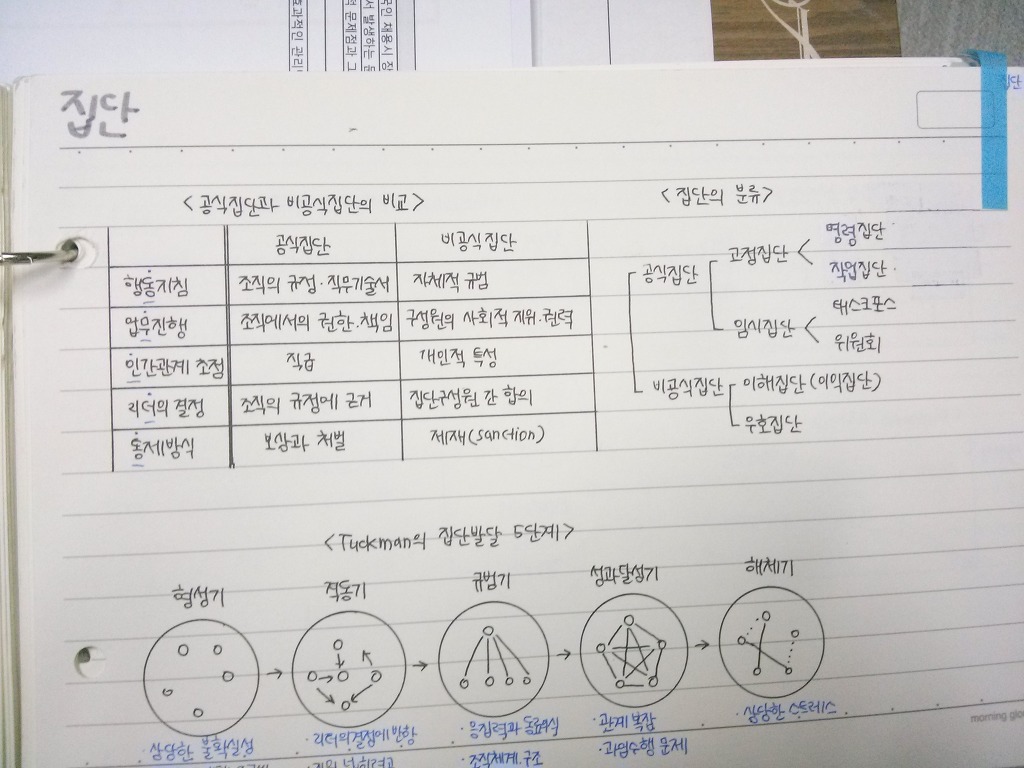 국인 채용시 장
서 발생하는 문
적 문제점과 그
효과적인 관리
집단
집단
<공식집단과 비공식집단의 비교>
공식집단 비공식집단
행동지침 조직의 규정·직무기술서 자체적 규범
업무진행 조직에서의 권한·책임 구성원의 사회적 지위·권력
인간관계 초점 직급 개인적 특성
리더의 결정 조직의 규정에 근거 집단구성원 간 합의
통제방식 보상과 처벌 제재(sanction)
<집단의 분류>
공식집단
고정집단
명령집단
작업집단
임시집단
태스크포스
위원회
비공식집단
이해집단(이익집단)
우호집단
<Tuckman의 집단발달 5단계>
형성기 격동기 규범기 성과달성기 해체기
·상당한 불확실성
·리더의결정에 반항
·응집력과 동료의식
·조직체계·구조
·관계 복잡
·과업수행 문제
·상당한 스트레스
morning glo